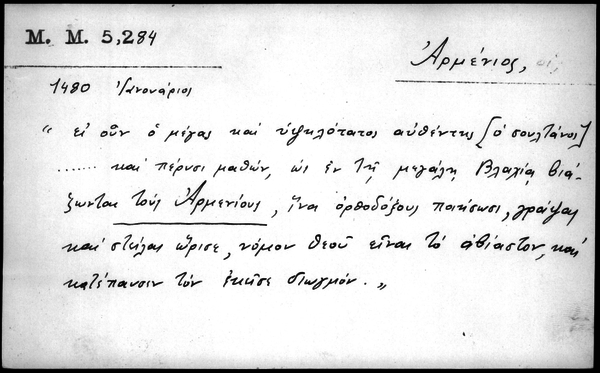 M. M. 5,284
Ἀρμένιος, οἱ,
1480 Ἰανουάριος
“ εἰ οὖν ὁ μέγας καὶ ὑψηλότατος αὐθέντης [ὁ σουλτάνος]
...... καὶ πέρυσι μαθών, ὡς ἐν τῇ μεγάλῃ Βλαχίᾳ βιά-
ζονται τοὺς Ἀρμενίους, ἵνα ὀρθοδόξους ποιήσωσι, γράψας
καὶ στείλας ὥρισε, νόμον θεοῦ εἶναι τὸ ἀβίαστον, καὶ
κατέπαυσεν τὸν ἐκεῖσε διωγμόν. „